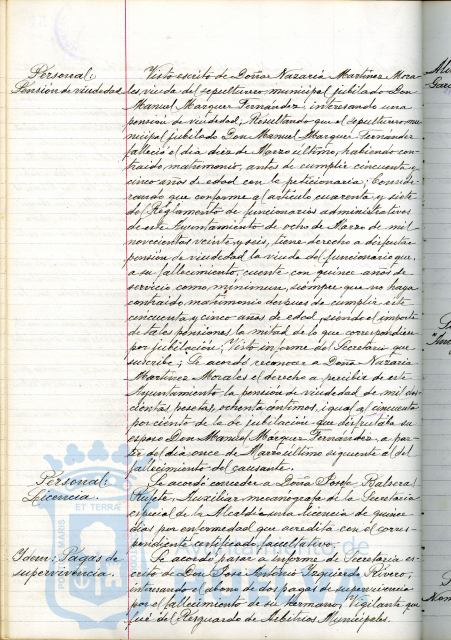 Personal:
Pensión de viudedad
Visto escrito de Doña Nazaria Martínez Mora-
les, viuda del sepulturero municipal jubilado Don
Manuel Márquez Fernández, interesando una
pensión de viudedad; Resultando que el sepulturero mu-
nicipal jubilado Don Manuel Márquez Fernández
falleció el día diez de Marzo último, habiendo con-
traido matrimonio, antes de cumplir cincuenta y
cinco años de edad con la peticionaria; Conside-
rando que conforme al artículo cuarenta y siete
del Reglamento de funcionarios administrativos
de este Ayuntamiento de ocho de Marzo de mil
novecientos veinte y seis, tiene derecho a disfrutar
pensión de viudedad la viuda del funcionario que,
a su fallecimiento, cuente con quince años de
servicio como minimum, siempre que no haya
contraido matrimonio después de cumplir este
cincuenta y cinco años de edad, siendo el importe
de tales pensiones la mitad de lo que correspondiera
por jubilación; Visto informe del Secretario que
suscribe; Se acordó reconocer a Doña Nazaria
Martínez Morales el derecho a percibir de este
Ayuntamiento la pensión de viudedad de mil
cientas pesetas ochenta céntimos, igual al cincuenta
por ciento de la de jubilación que disfrutaba su
esposo Don Manuel Márquez Fernández, a par-
tir del día once de Marzo último siguiente al del
fallecimiento del causante.
Personal:
Licencia.
Se acordó conceder a Doña Josefa Balsera
Auxiliar mecanógrafa de la Secretaría
especial de la Alcaldía una licencia de quince
días por enfermedad que acredita con el corres-
pondiente certificado facultativo.
Idem: Pagas de
supervivencia.
Se acordó pase a informe de Secretaría es-
crito de Don José Antonio Izquierdo Rivero,
interesando el abono de dos pagas de supervivencia
por el fallecimiento de su hermano, Vigilante que
fué del Resguardo de Arbitrios Municipales.
ET TERRA
Ayuntamiento de